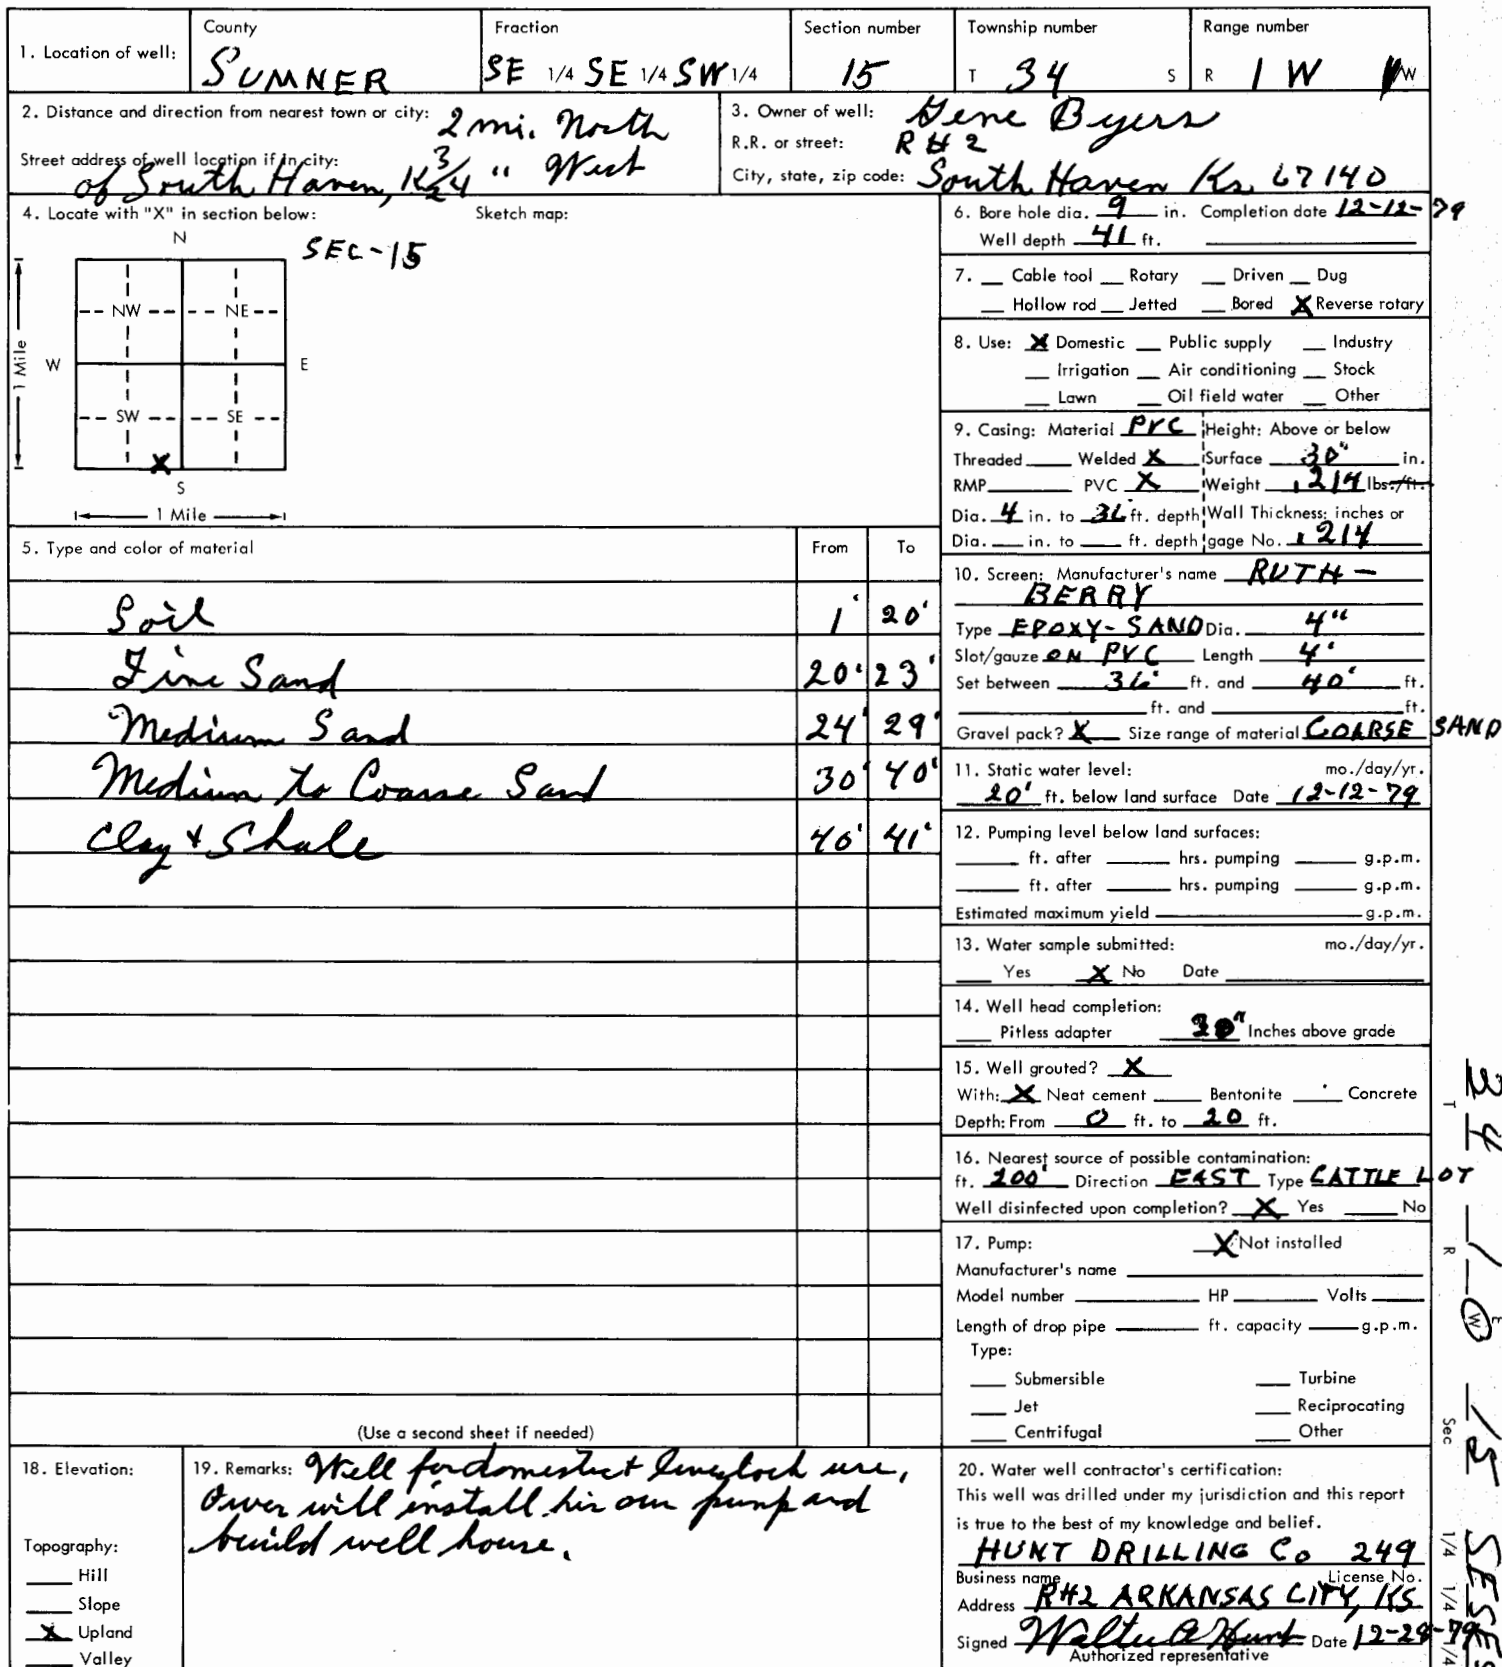 1. Location of well:
County
SUMNER
Fraction
SE 1/4 SE 1/4 SW 1/4
Section number
15
Township number
T 34 S
Range number
R 1 W W
2. Distance and direction from nearest town or city: 2 mi. North
Street address of well location if in city: 3/4 " West
of South Haven, Ks
3. Owner of well: Gene Byers
R.R. or street: R#2
City, state, zip code: South Haven Ks. 67140
4. Locate with "X" in section below:
Sketch map:
N
SEC-15
NW NE
W E
1 Mile
SW SE
X
S
1 Mile
5. Type and color of material From To
Soil 1' 20'
Fine Sand 20' 23'
Medium Sand 24' 29'
Medium to Coarse Sand 30' 40'
Clay & Shale 40' 41'
(Use a second sheet if needed)
6. Bore hole dia. 9 in. Completion date 12-12-79
Well depth 41 ft.
7. Cable tool Rotary Driven Dug
Hollow rod Jetted Bored X Reverse rotary
8. Use: X Domestic Public supply Industry
Irrigation Air conditioning Stock
Lawn Oil field water Other
9. Casing: Material PVC Height: Above or below
Threaded Welded X Surface 30" in.
RMP PVC X Weight .214 lbs./ft.
Dia. 4 in. to 36 ft. depth Wall Thickness: inches or
Dia. in. to ft. depth gage No. .214
10. Screen: Manufacturer's name RUTH-
BERRY
Type EPOXY-SAND Dia. 4"
Slot/gauze ON PVC Length 4'
Set between 36' ft. and 40' ft.
ft. and ft.
Gravel pack? X Size range of material COARSE SAND
11. Static water level: mo./day/yr.
20' ft. below land surface Date 12-12-79
12. Pumping level below land surfaces:
ft. after hrs. pumping g.p.m.
ft. after hrs. pumping g.p.m.
Estimated maximum yield g.p.m.
13. Water sample submitted: mo./day/yr.
Yes X No Date
14. Well head completion:
Pitless adapter 30" Inches above grade
15. Well grouted? X
With: X Neat cement Bentonite Concrete
Depth: From 0 ft. to 20 ft.
16. Nearest source of possible contamination:
ft. 200' Direction EAST Type CATTLE LOT
Well disinfected upon completion? X Yes No
17. Pump: X Not installed
Manufacturer's name
Model number HP Volts
Length of drop pipe ft. capacity g.p.m.
Type:
Submersible Turbine
Jet Reciprocating
Centrifugal Other
18. Elevation:
Topography:
Hill
Slope
X Upland
Valley
19. Remarks: Well for domestic + livestock use,
Owner will install his own pump and
build well house.
20. Water well contractor's certification:
This well was drilled under my jurisdiction and this report
is true to the best of my knowledge and belief.
HUNT DRILLING Co 249
Business name License No.
Address R#2 ARKANSAS CITY, KS
Signed Walter A Hunt Date 12-28-79
Authorized representative
T 34 R 1 E W Sec 15 1/4 1/4 1/4 SE SE S